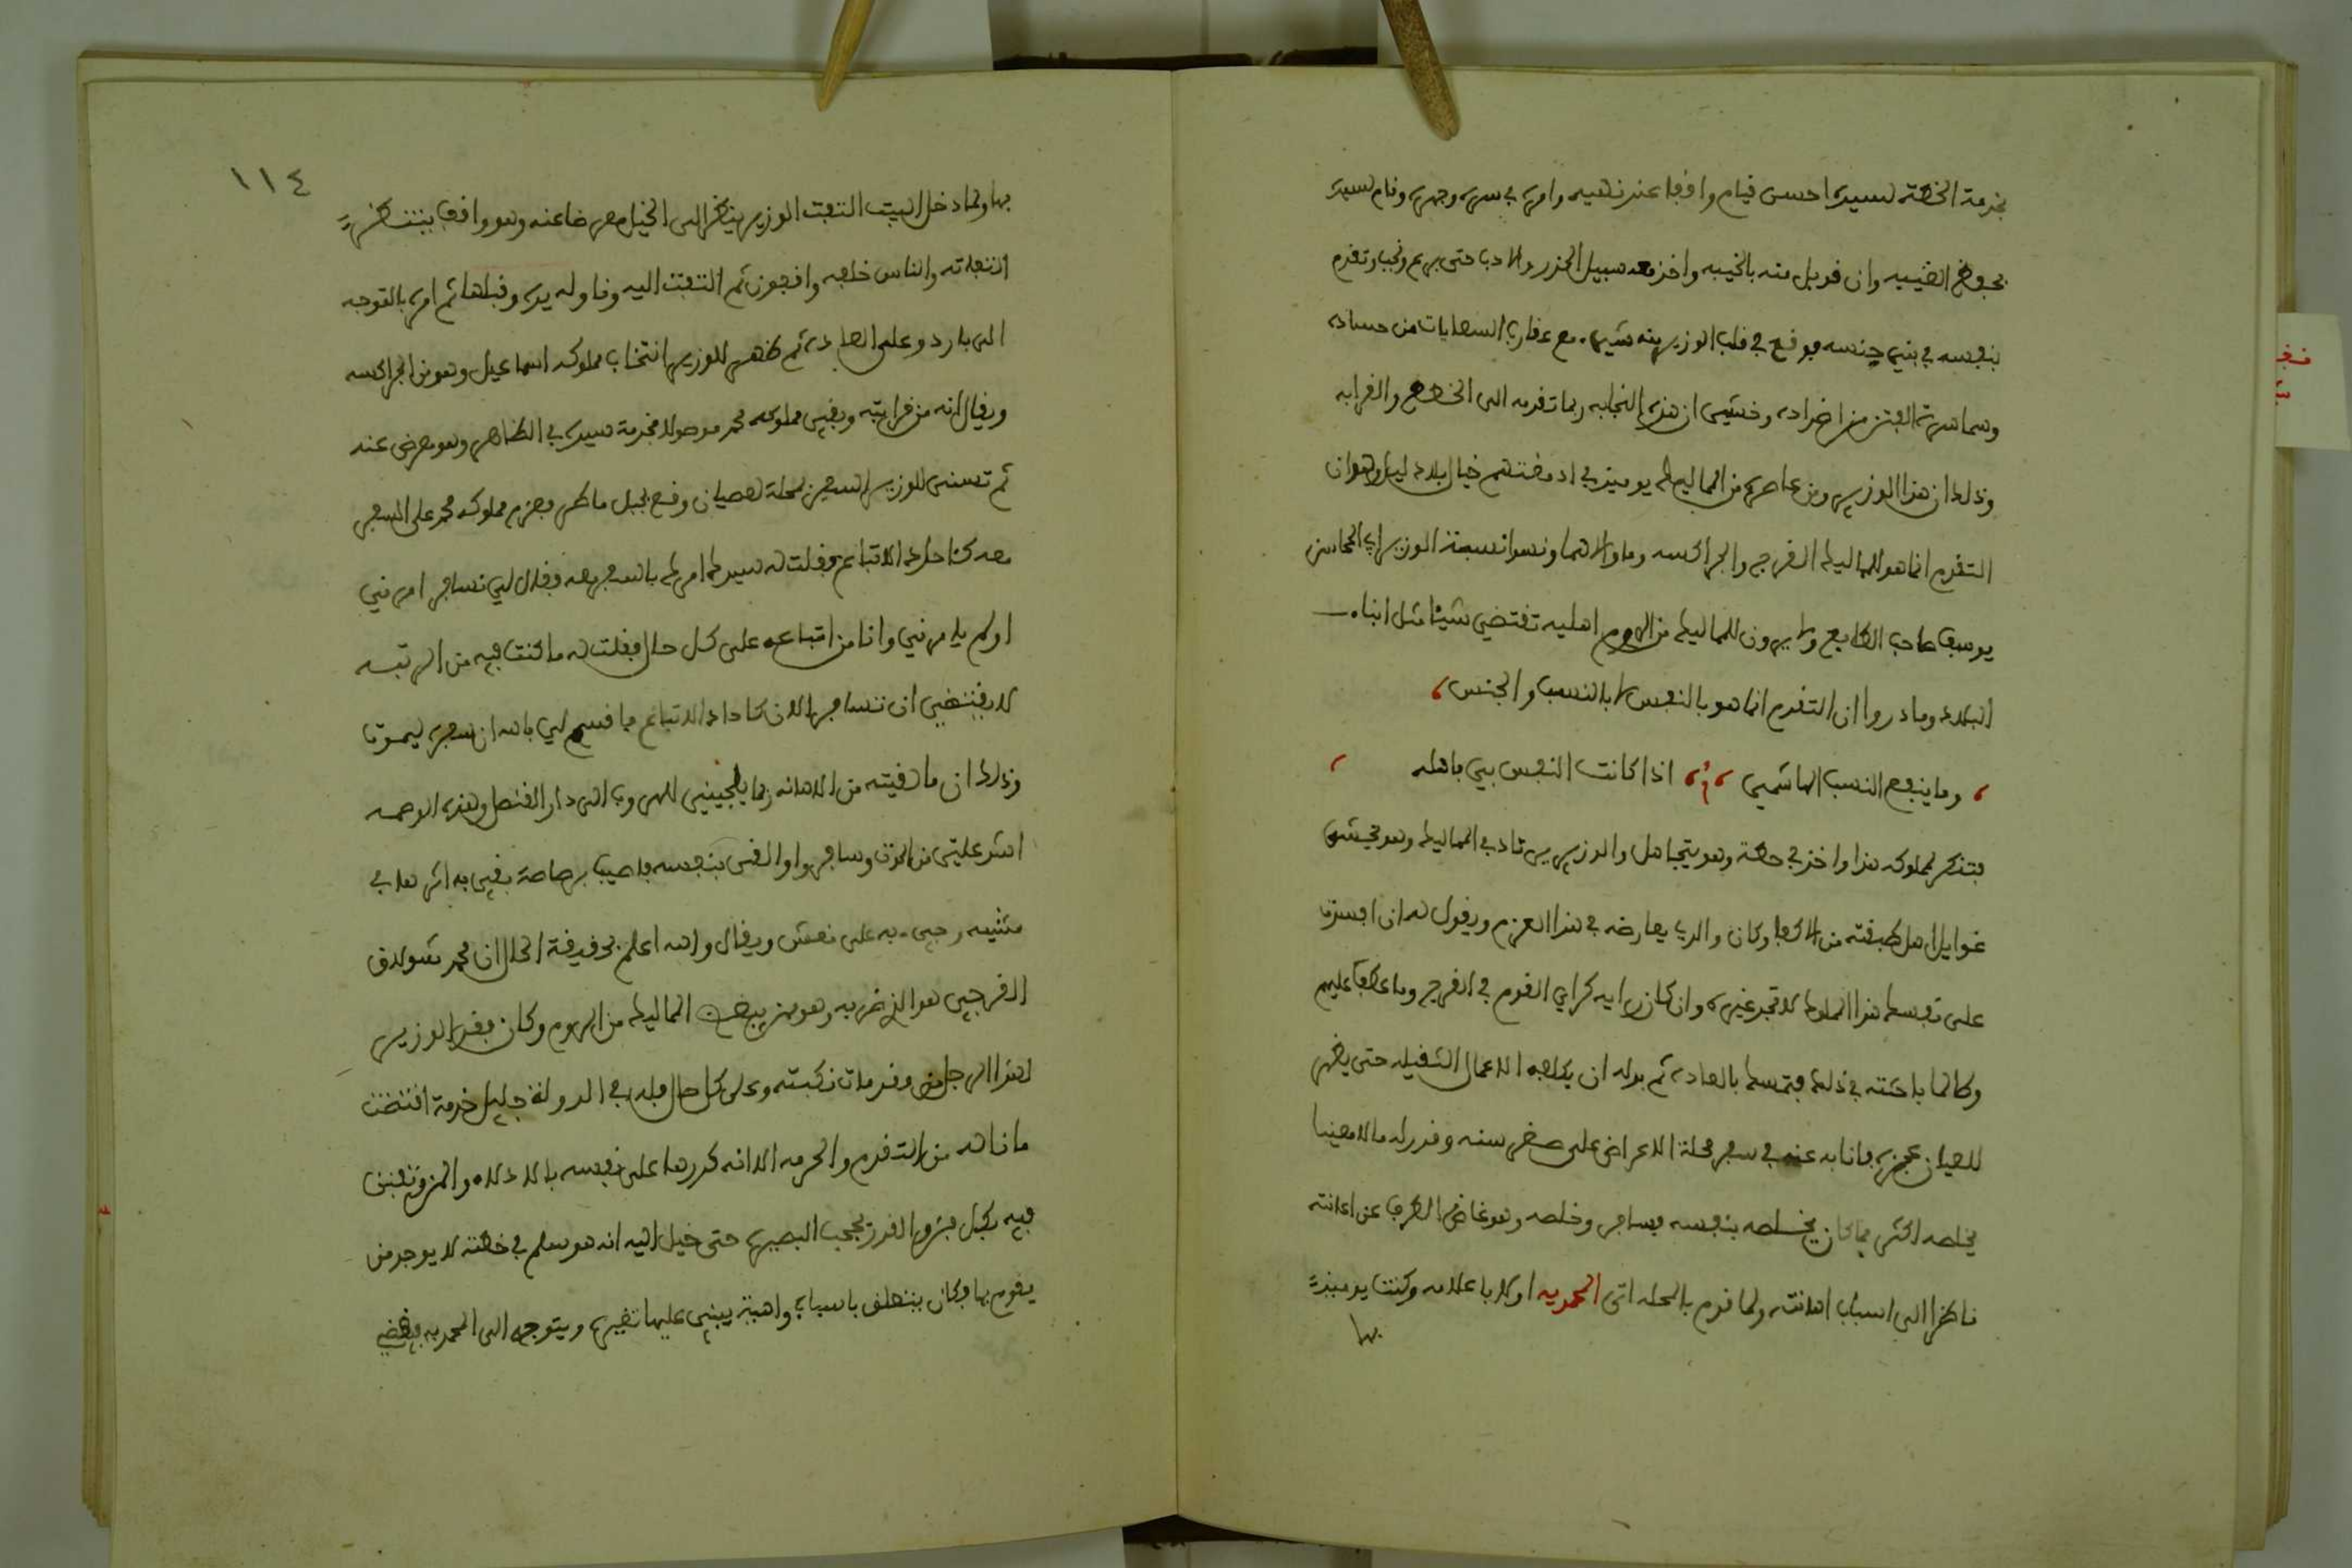 بخدمة الخطة لسيده احسن قيام واقفا عند نهيه وامره في سره وجهره وقام لسيده
بحفظ الغيبه وان قوبل منه بالخيبه واخذ معه سبيل الجد والادب حتى برع ونجب وتقدم
بنفسه في بني جنسه فوقع في قلب الوزير منه شيء مع عقارب السعايات من حساده
وسماسرة الفتن من اضداده وخشي ان هذه النجابه ربما تقدمه الى الخطط والقرابه
وذلك ان هذا الوزير ومن عاصره من المماليك يوميذ في ادمغتهم خيال بلادليل وهو ان
التقدم انما هو للمماليك الفرج والجراكسه وما والاهما ونسوا نسبة الوزير ابي المحاسن
يوسف صاحب الطابع ولا يرون للمماليك من الروم اهليه تقتضي شيئا مثل ابناء
البلاد وما دروا ان التقدم انما هو بالنفس لا بالنسب والجنس
وما ينفع النسب الهاشمي اذا كانت النفس من باهله
فتنكر لمملوكه هذا واخذ في حطه وهو يتجاهل والوزير يرتاد في المماليك وهو يخشى
غوايل اهل طبقته من الاكفاء وكان والدي يعارضه في هذا العزم ويقول له ان افسدت
على نفسك هذا المملوك لا تجد غيره وان كان رايه كراي القوم في الفرج وما عطف عليهم
وطالما باحثته في ذلك فتمسك بالعاده ثم بدا له ان يكلفه الاعمال الثقيله حتى يظهر
للعيان عجزه فانابه عنه في سفر محلة الاعراض على صغر سنه وقدر له مالا معينا
يخلصه اكثر مما كان يخلصه بنفسه فسافر وخلصه وهو غاض الطرف عن اعانته
ناظرا الى اسباب اهانته ولما قدم بالمحله اتى المحمديه اولا باعلامه وكنت يوميذ
بها
١١٤
بها ولما دخل البيت التفت الوزير ينظر الى الخيل معرضا عنه وهو واقف ينتظر
التفاته والناس خلفه واقفون ثم التفت اليه وناوله يده وقبلها ثم امره بالتوجه
الى باردو على العاده ثم ظهر للوزير انتخاب مملوكه اسماعيل وهو من الجراكسه
ويقال انه من قرابته وبقي مملوكه محمد موصولا بخدمة سيده في الظاهر وهو معرض عنه
ثم تسنى للوزير السفر بمحلة لعصيان وقع بجبل ماطر فعزم مملوكه محمد على السفر
معه كاحاد الاتباع فقلت له سيدك امرك بالسفر معه فقال لي نسافر امرني
او لم يامرني وانا من اتباعه على كل حال فقلت له ما كنت فيه من الرتبه
لا يقتضي ان تسافر الان كاحاد الاتباع فاقسم لي بالله ان سفره ليموت
وذلك ان ما لقيته من الاهانه ربما يلجيني للهروب الى دار القنصل وهذه الوصمه
اشد علي من الموت وسافر والقى بنفسه فاصيب برصاصة بقي به اثرها في
مشيه وجيء به على نعش ويقال والله اعلم بحقيقة الحال ان محمد شولاق
القرجي هو الذي ضربه وهو من يبغض المماليك من الروم وكان فقد الوزير
لهذا الرجل من مقدمات نكبته وعلى كل حال فله في الدولة جليل خدمة اقتضت
ما ناله من التقدم والحرمه الا انه كدرها على نفسه بالادلال والمزونقبض
فيه بكبل فوق القدر يحجب البصيره حتى خيل اليه انه هو سلم في خطته لا يوجد من
يقوم بها وكان يتعلق باسباب واهية يبني عليها تغيره ويتوجه الى المحمديه فيقضي